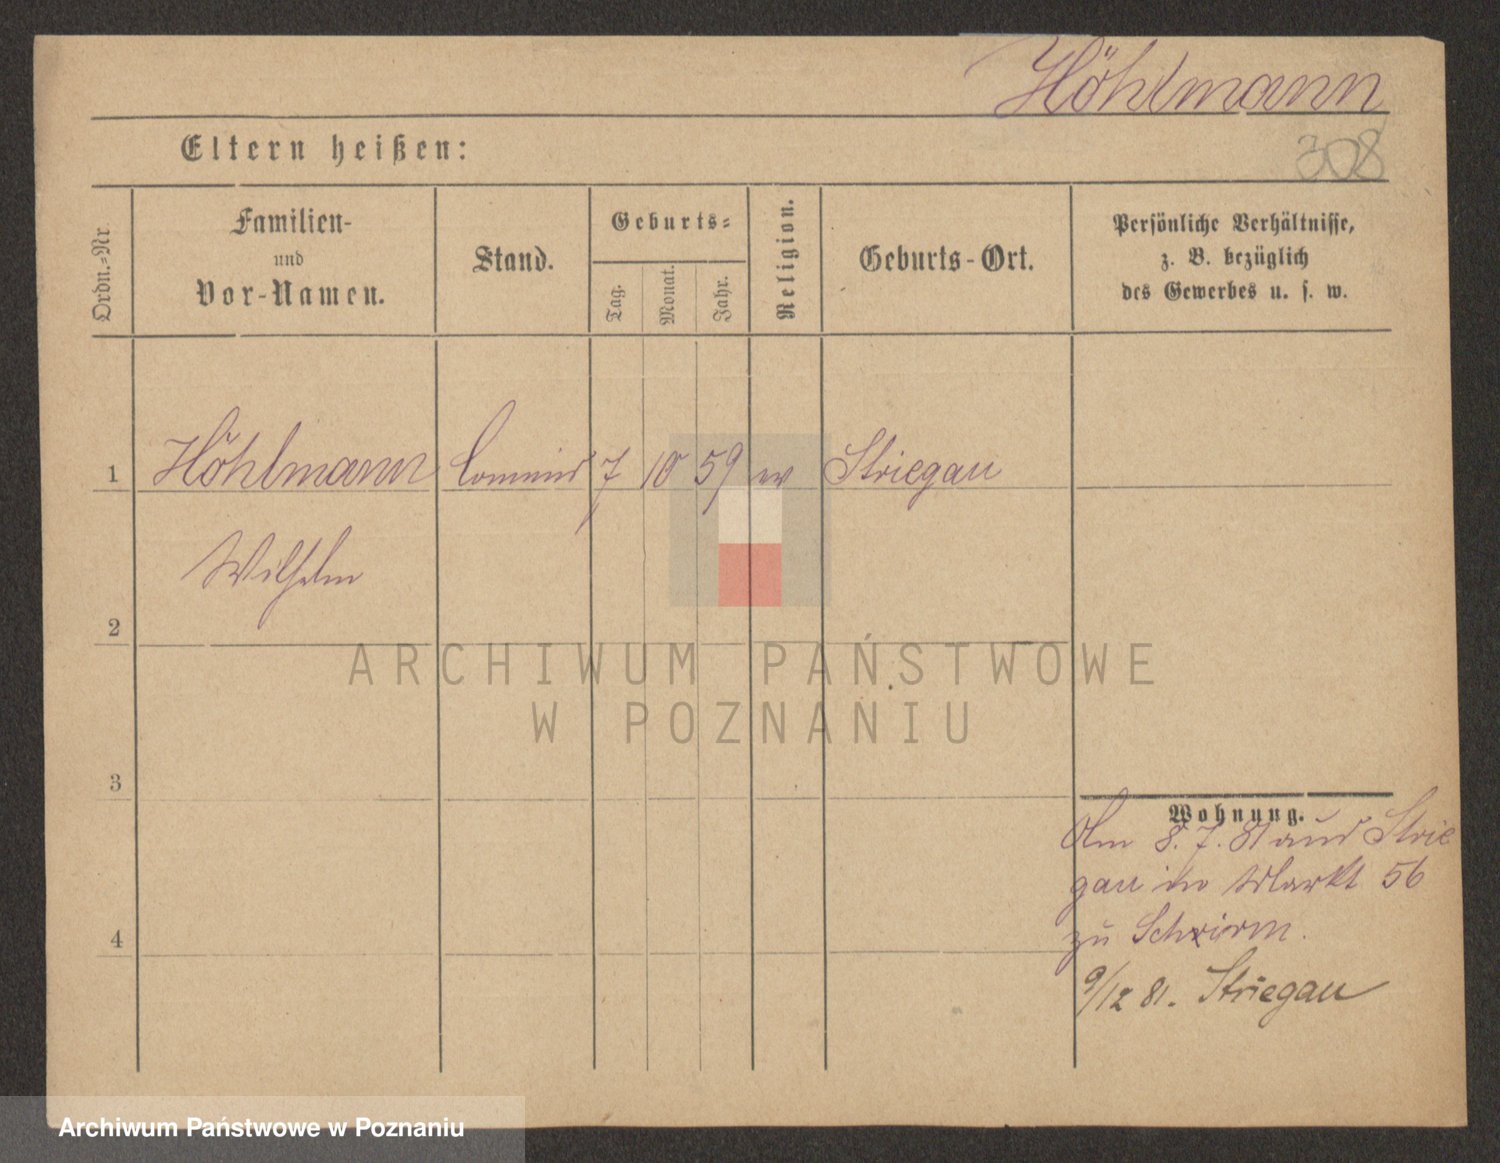 Höhlmann
308
Eltern heißen:
Ordn.-Nr
Familien-
und
Vor-Namen.
Stand.
Geburts-
Tag.
Monat.
Jahr.
Religion.
Geburts-Ort.
Persönliche Verhältnisse,
z. B. bezüglich
des Gewerbes u. s. w.
1 Höhlmann Commis 7 10 59 ev Striegau
Wilhelm
2
3
4
Wohnung.
Am 8. 7. 81 aus Strie
gau in Markt 56
zu
9/12 81. Striegau
ARCHIWUM PAŃSTWOWE
W POZNANIU
Archiwum Państwowe w Poznaniu